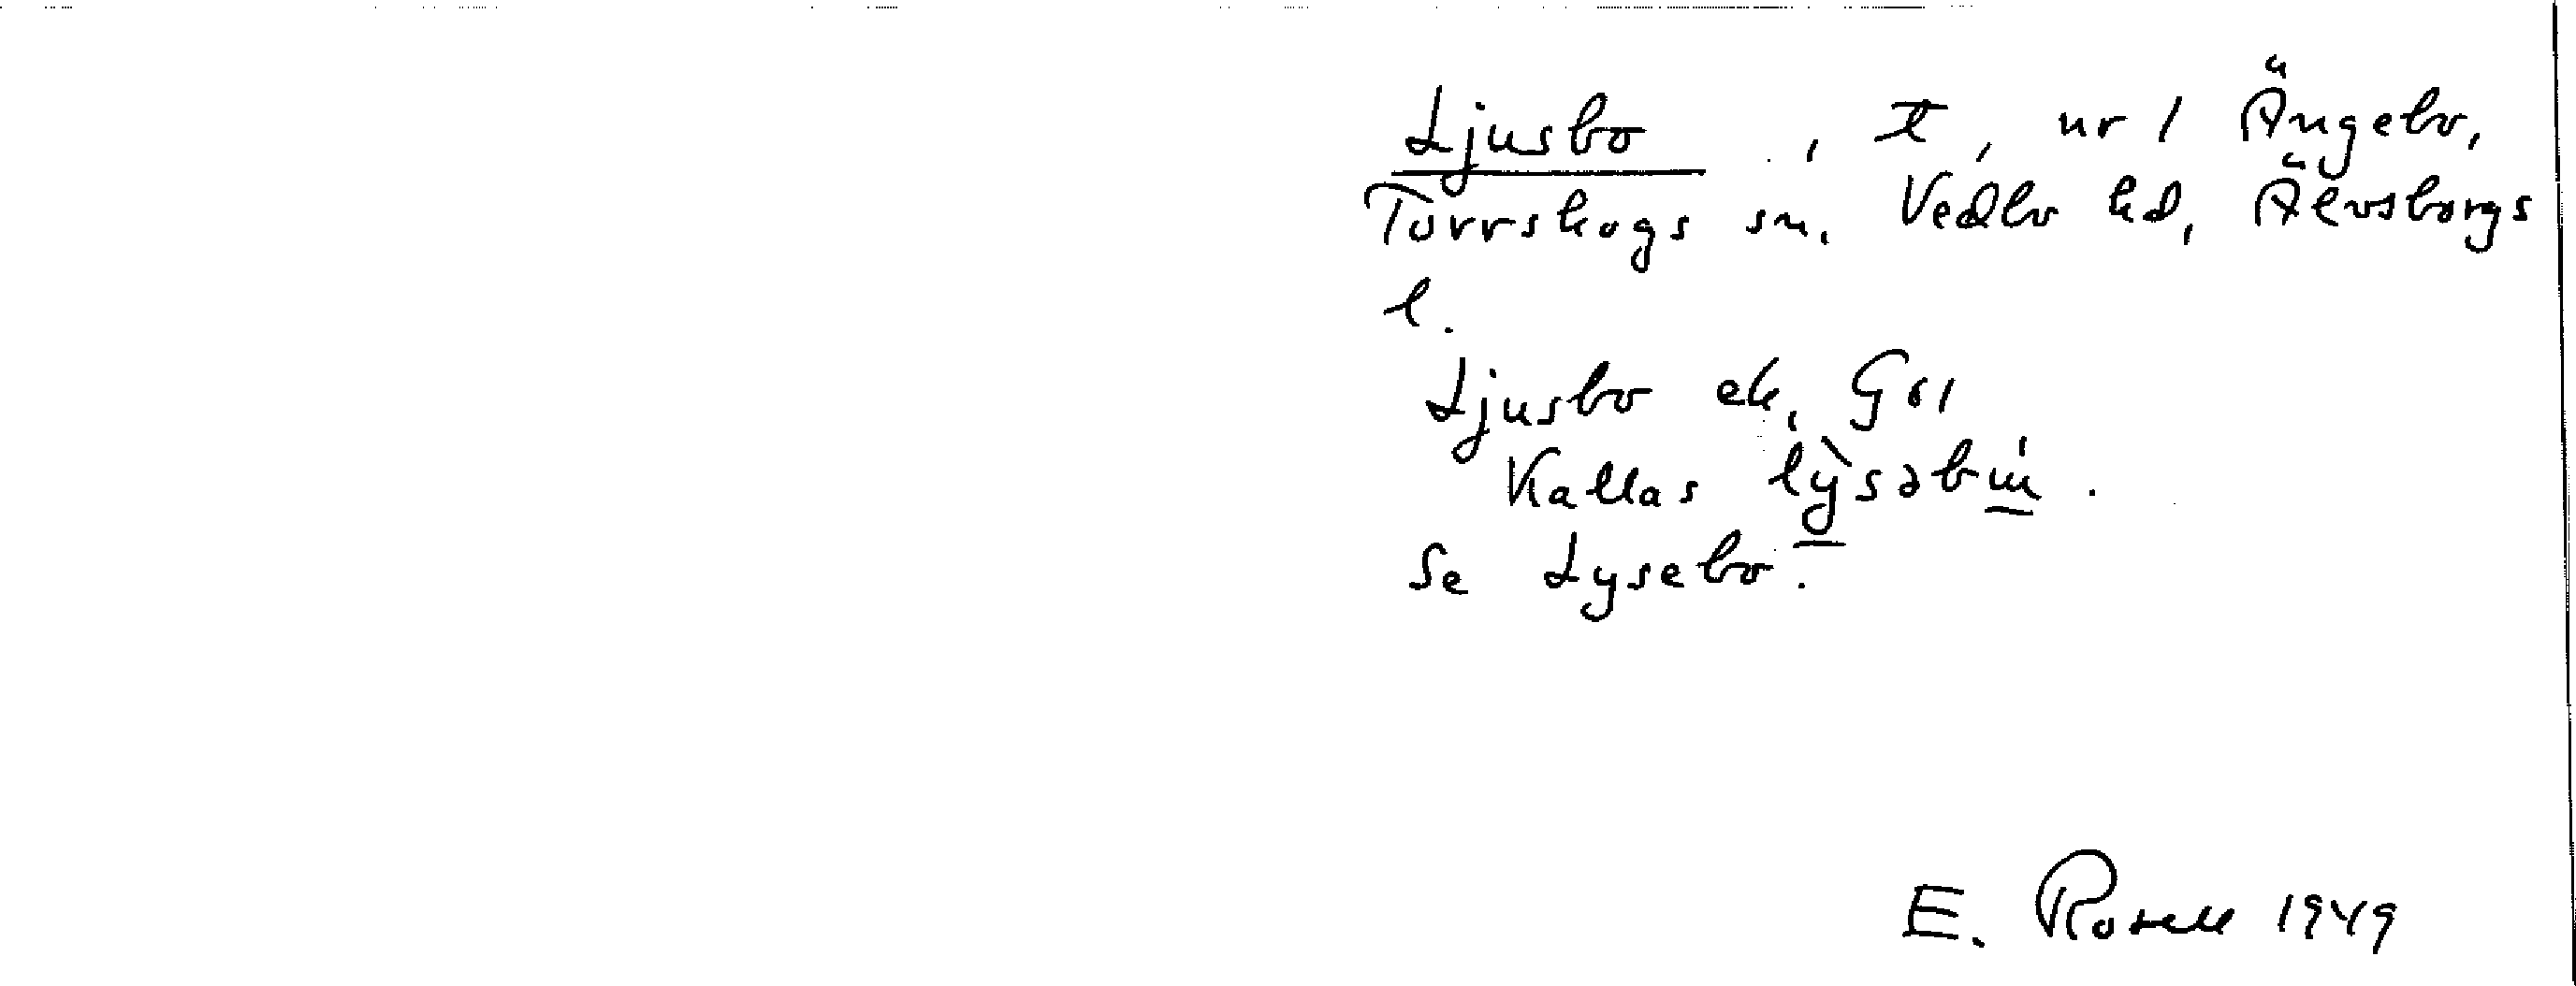 Ljusbo , t, nr 1 Ängebo,
Torrskogs sn. Vedbo hd, Älvsborgs
l.
Ljusbo ek, G
Kallas
Se Lysebo.
E. Rosell 1949